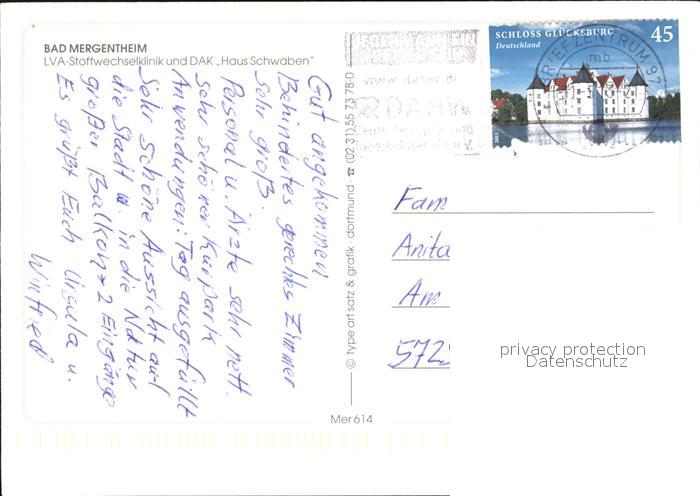 BAD MERGENTHEIM
LVA-Stoffwechselklinik und DAK „Haus Schwaben"
Gut angekommen
Behindertes gerechtes Zimmer
sehr groß.
Personal u. Ärzte sehr nett.
Sehr schöner Kurpark
Anwendungen: Tag ausgefüllt
Sehr schöne Aussicht auf
die Stadt u. in die Natur
großer Balkon 2 Eingänge
Es grüßt Euch Ursula u.
Winfried
© type art satz & grafik · dortmund · ☎ (02 31) 55 73 78-0
Mer 614
SCHLOSS GLÜCKSBURG 45
Deutschland
2013
BRIEFZENTRUM 97
mb
Fam
Anita
Am
572
privacy protection
Datenschutz